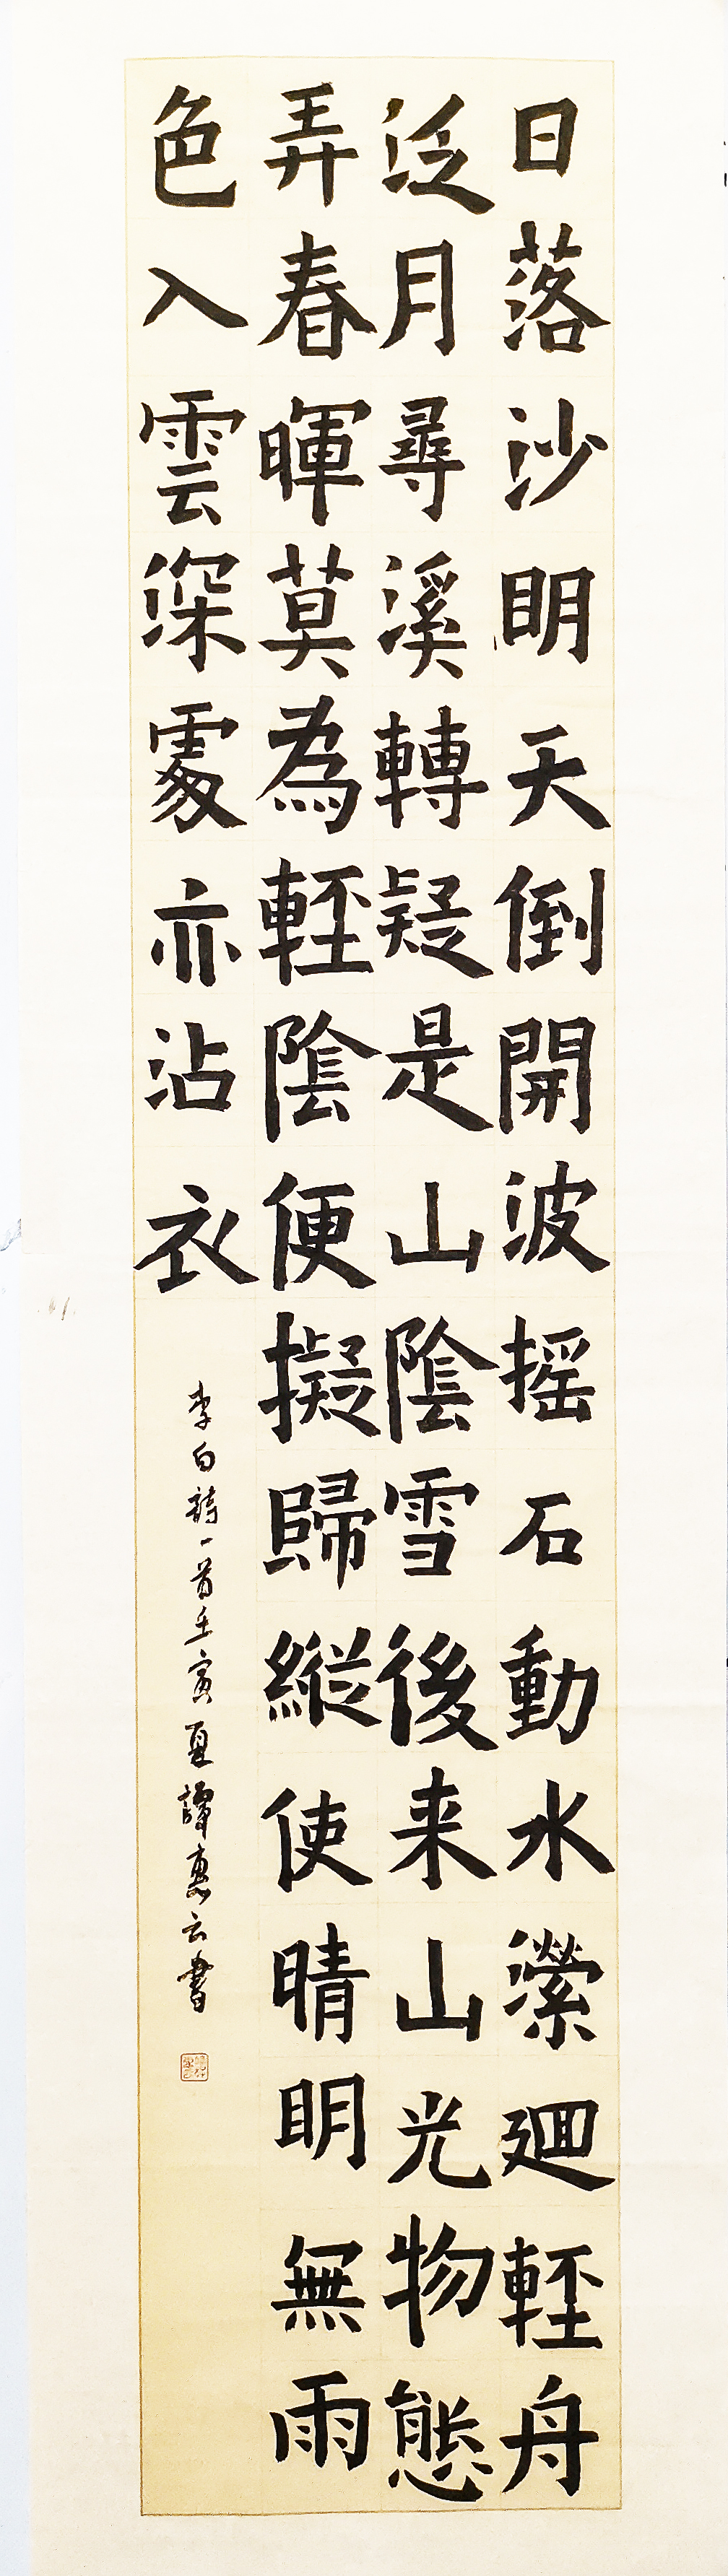 日落沙明天倒開波摇石動水瀠廻輕舟
泛月尋溪轉疑是山陰雪後来山光物態
弄春暉莫為輕陰便擬歸縱使晴明無雨
色入雲深處亦沾衣
李白詩一首壬寅夏譚惠云書